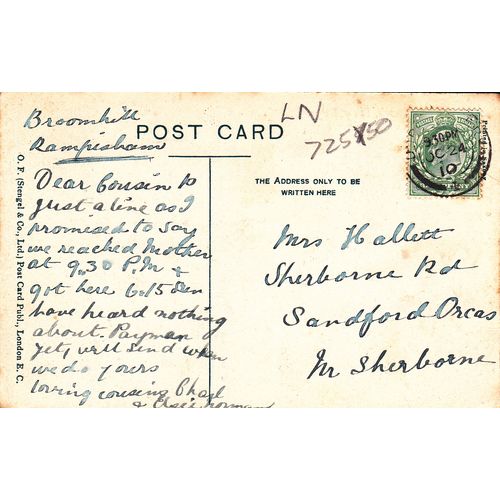 Broomhill
Rampisham
LN
725 50
POST CARD
9.30PM
OC 24
10
THE ADDRESS ONLY TO BE
WRITTEN HERE
Dear Cousin
just a line as I
promised to say
we reached Mother
at 9.30 P.M &
got here 6.15
have heard nothing
about Payman
yet, will send when
we do yours
loving cousins Chas
& Elsie Norman
Mrs Hallett
Sherborne Rd
Sandford Orcas
Nr Sherborne
O. F. (Stengel & Co., Ltd.) Post Card Publ., London E. C.